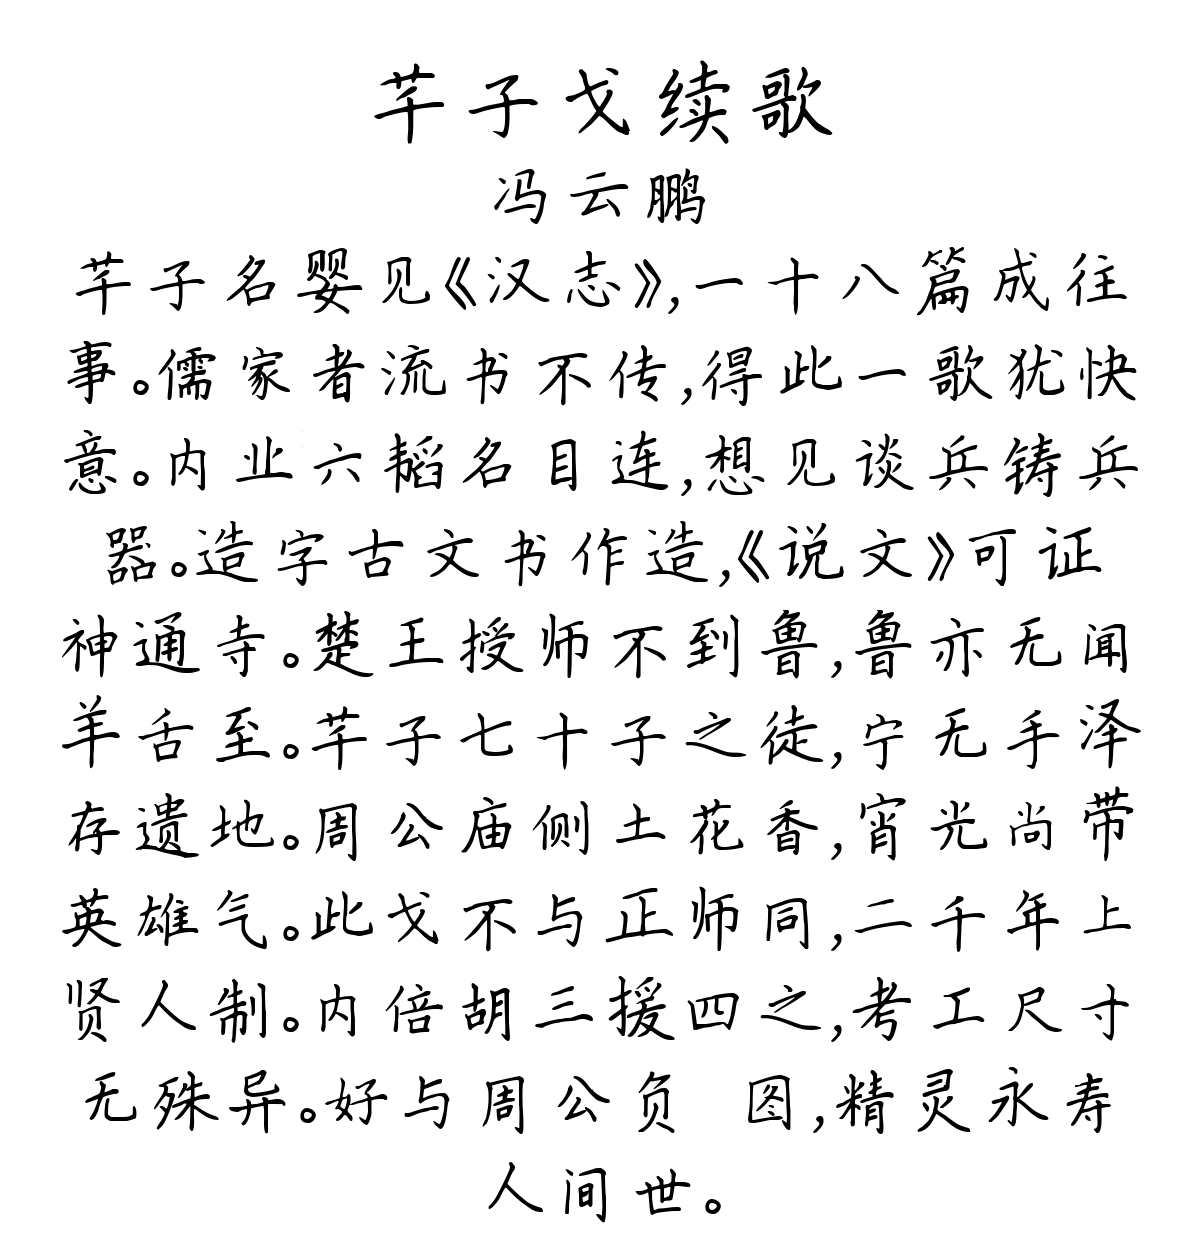 芊子戈续歌
冯云鹏
芊子名婴见《汉志》,一十八篇成往
事。儒家者流书不传,得此一歌犹快
意。内业六韬名目连,想见谈兵铸兵
器。造字古文书作造,《说文》可证
神通寺。楚王授师不到鲁,鲁亦无闻
羊舌至。芊子七十子之徒,宁无手泽
存遗地。周公庙侧土花香,宵光尚带
英雄气。此戈不与正师同,二千年上
贤人制。内倍胡三援四之,考工尺寸
无殊异。好与周公负 图,精灵永寿
人间世。